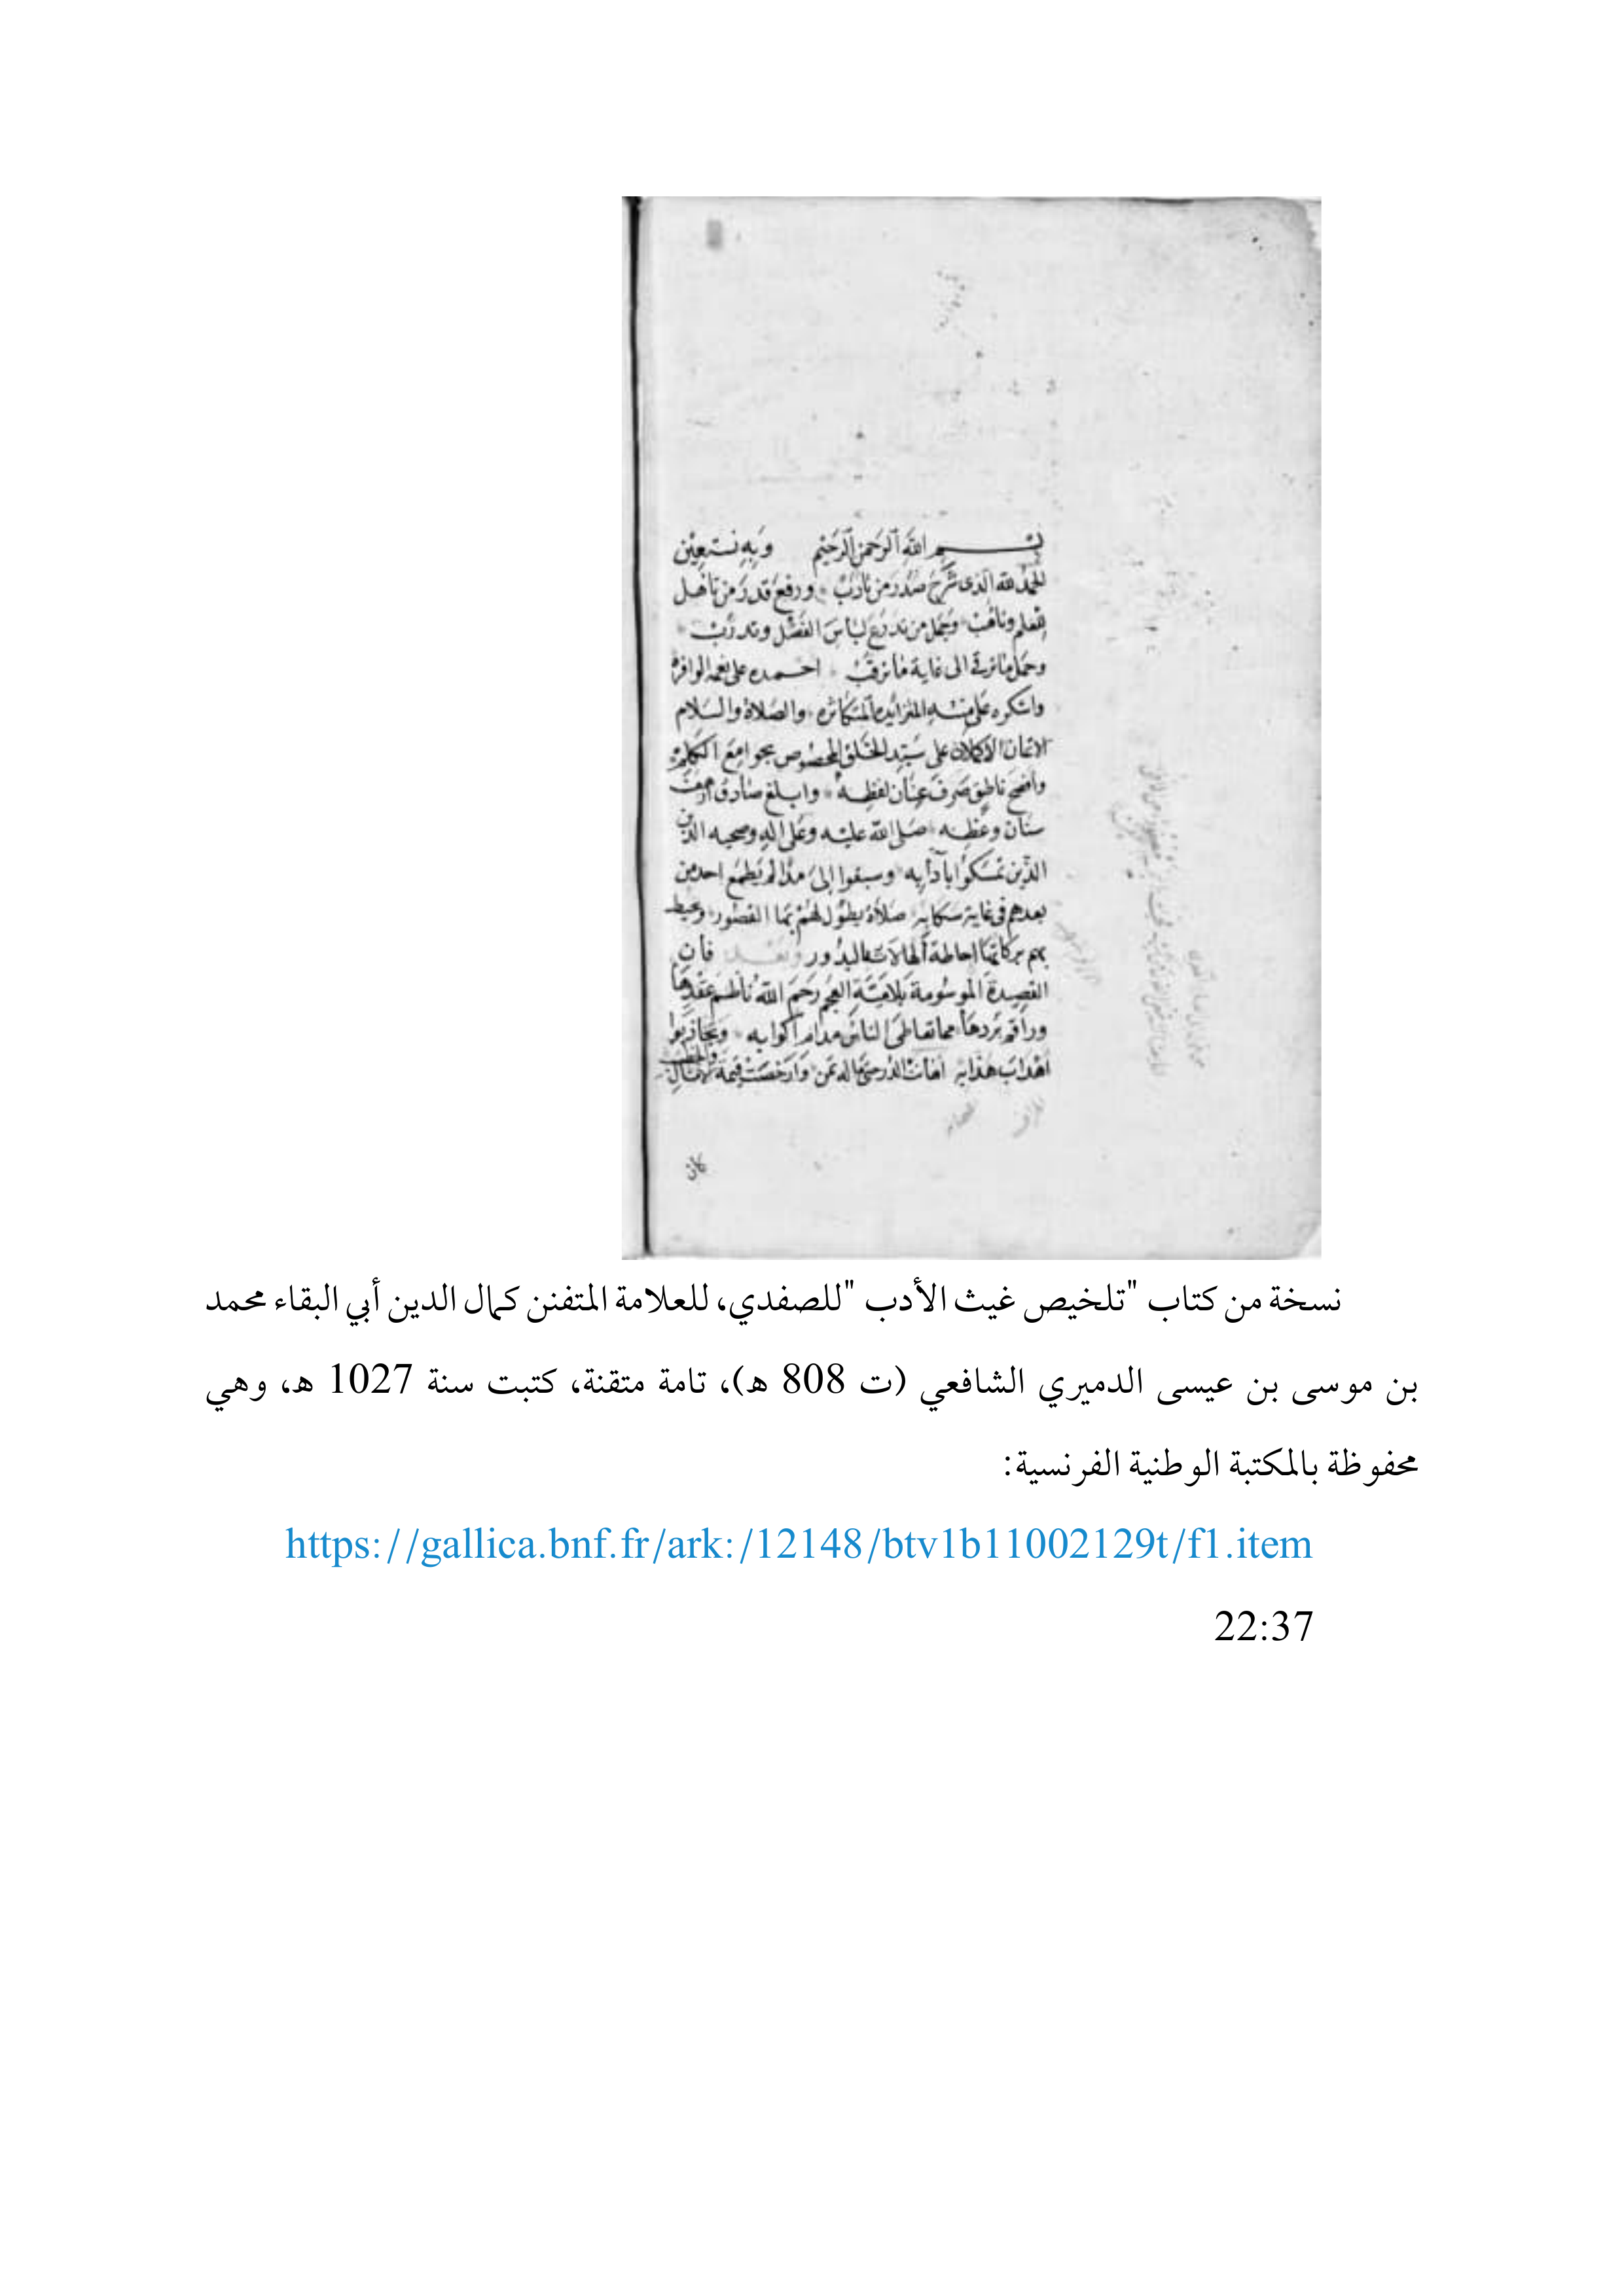 بسم الله الرحمن الرحيم وبه نستعين
الحمد لله الذى شرح صدر من تادب ورفع قدر من تاهل
للعلم وجمل من تدرع لباس الفضل وتدرب
الى غاية ما ترقب احمده على نعمه الوافره
واشكره على مننه المتزايده المتكاثره والصلاة والسلام
الاتمان الاكملان على سيد الخلق المخصوص بجوامع الكلم
وافصح ناطق صرف عنان لفظه وابلغ صادق ارهف
سنان وعظه صلى الله عليه وعلى اله وصحبه الذين
الذين تمسكوا بآدابه وسبقوا الى مدا لم يطمع احد من
بعدهم فى غاية صلاة يطول لهم بها القصور وتحيط
بهم بركاتها احاطة الهالات بالبدور وبعد فان
القصيدة الموسومة بلامية العجم رحم الله ناظم عقدها
وراقم بردها مما تعاطى الناس مدام اكوابه وتجاذبوا
اهداب هدابه الدر حتى ماله ثمن وارخصت قيمة الامثال
والخطب
كان
نسخة من كتاب "تلخيص غيث الأدب "للصفدي، للعلامة المتفنن كمال الدين أبي البقاء محمد
بن موسى بن عيسى الدميري الشافعي (ت 808 هـ)، تامة متقنة، كتبت سنة 1027 هـ، وهي
محفوظة بالمكتبة الوطنية الفرنسية:
https://gallica.bnf.fr/ark:/12148/btv1b11002129t/f1.item
22:37